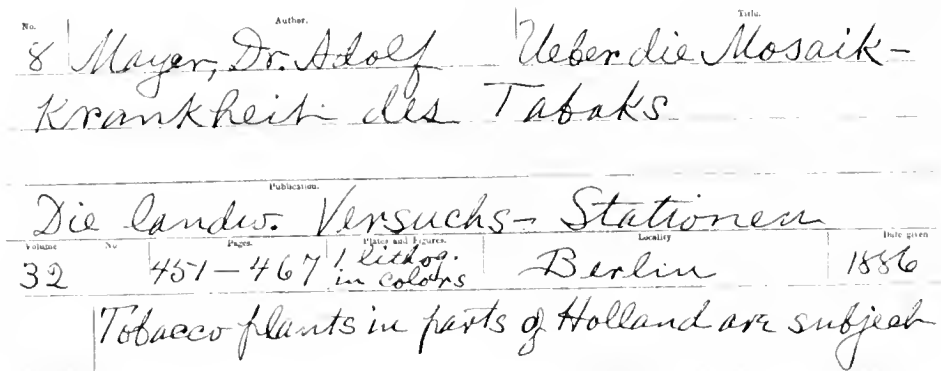 No. Author. Title.
8 Mayer, Dr. Adolf Ueber die Mosaik-
Krankheit des Tabaks
Publication.
Die landw. Versuchs-Stationen
Volume No Pages. Plates and Figures. Locality Date given
32 451-467 1 lithog. in colors Berlin 1886
Tobacco plants in parts of Holland are subject